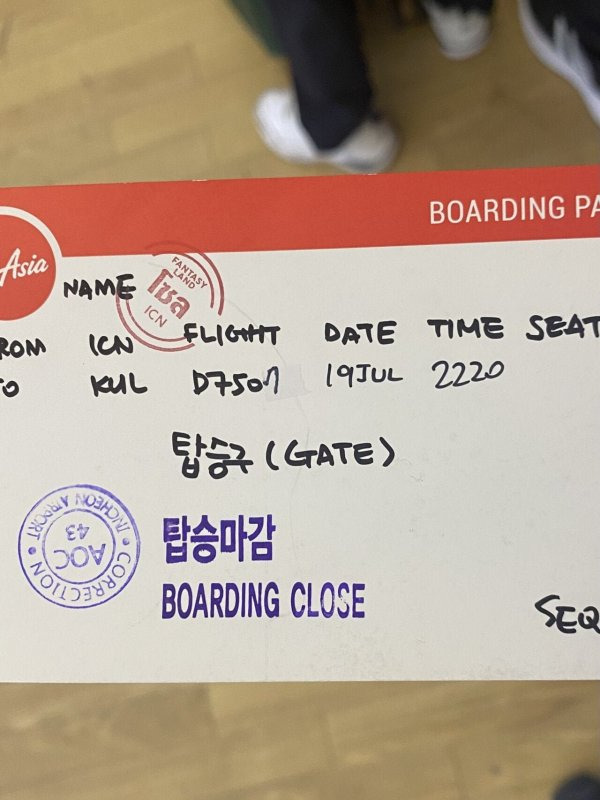 BOARDING PA
Asia
NAME
FANTASY
LAND
โซล
ICN
ROM ICN FLIGHT DATE TIME SEAT
TO KUL D7507 19JUL 2220
탑승구 (GATE)
INCHEON AIRPORT
AOC
43
CORRECTION
탑승마감
BOARDING CLOSE
SEQ